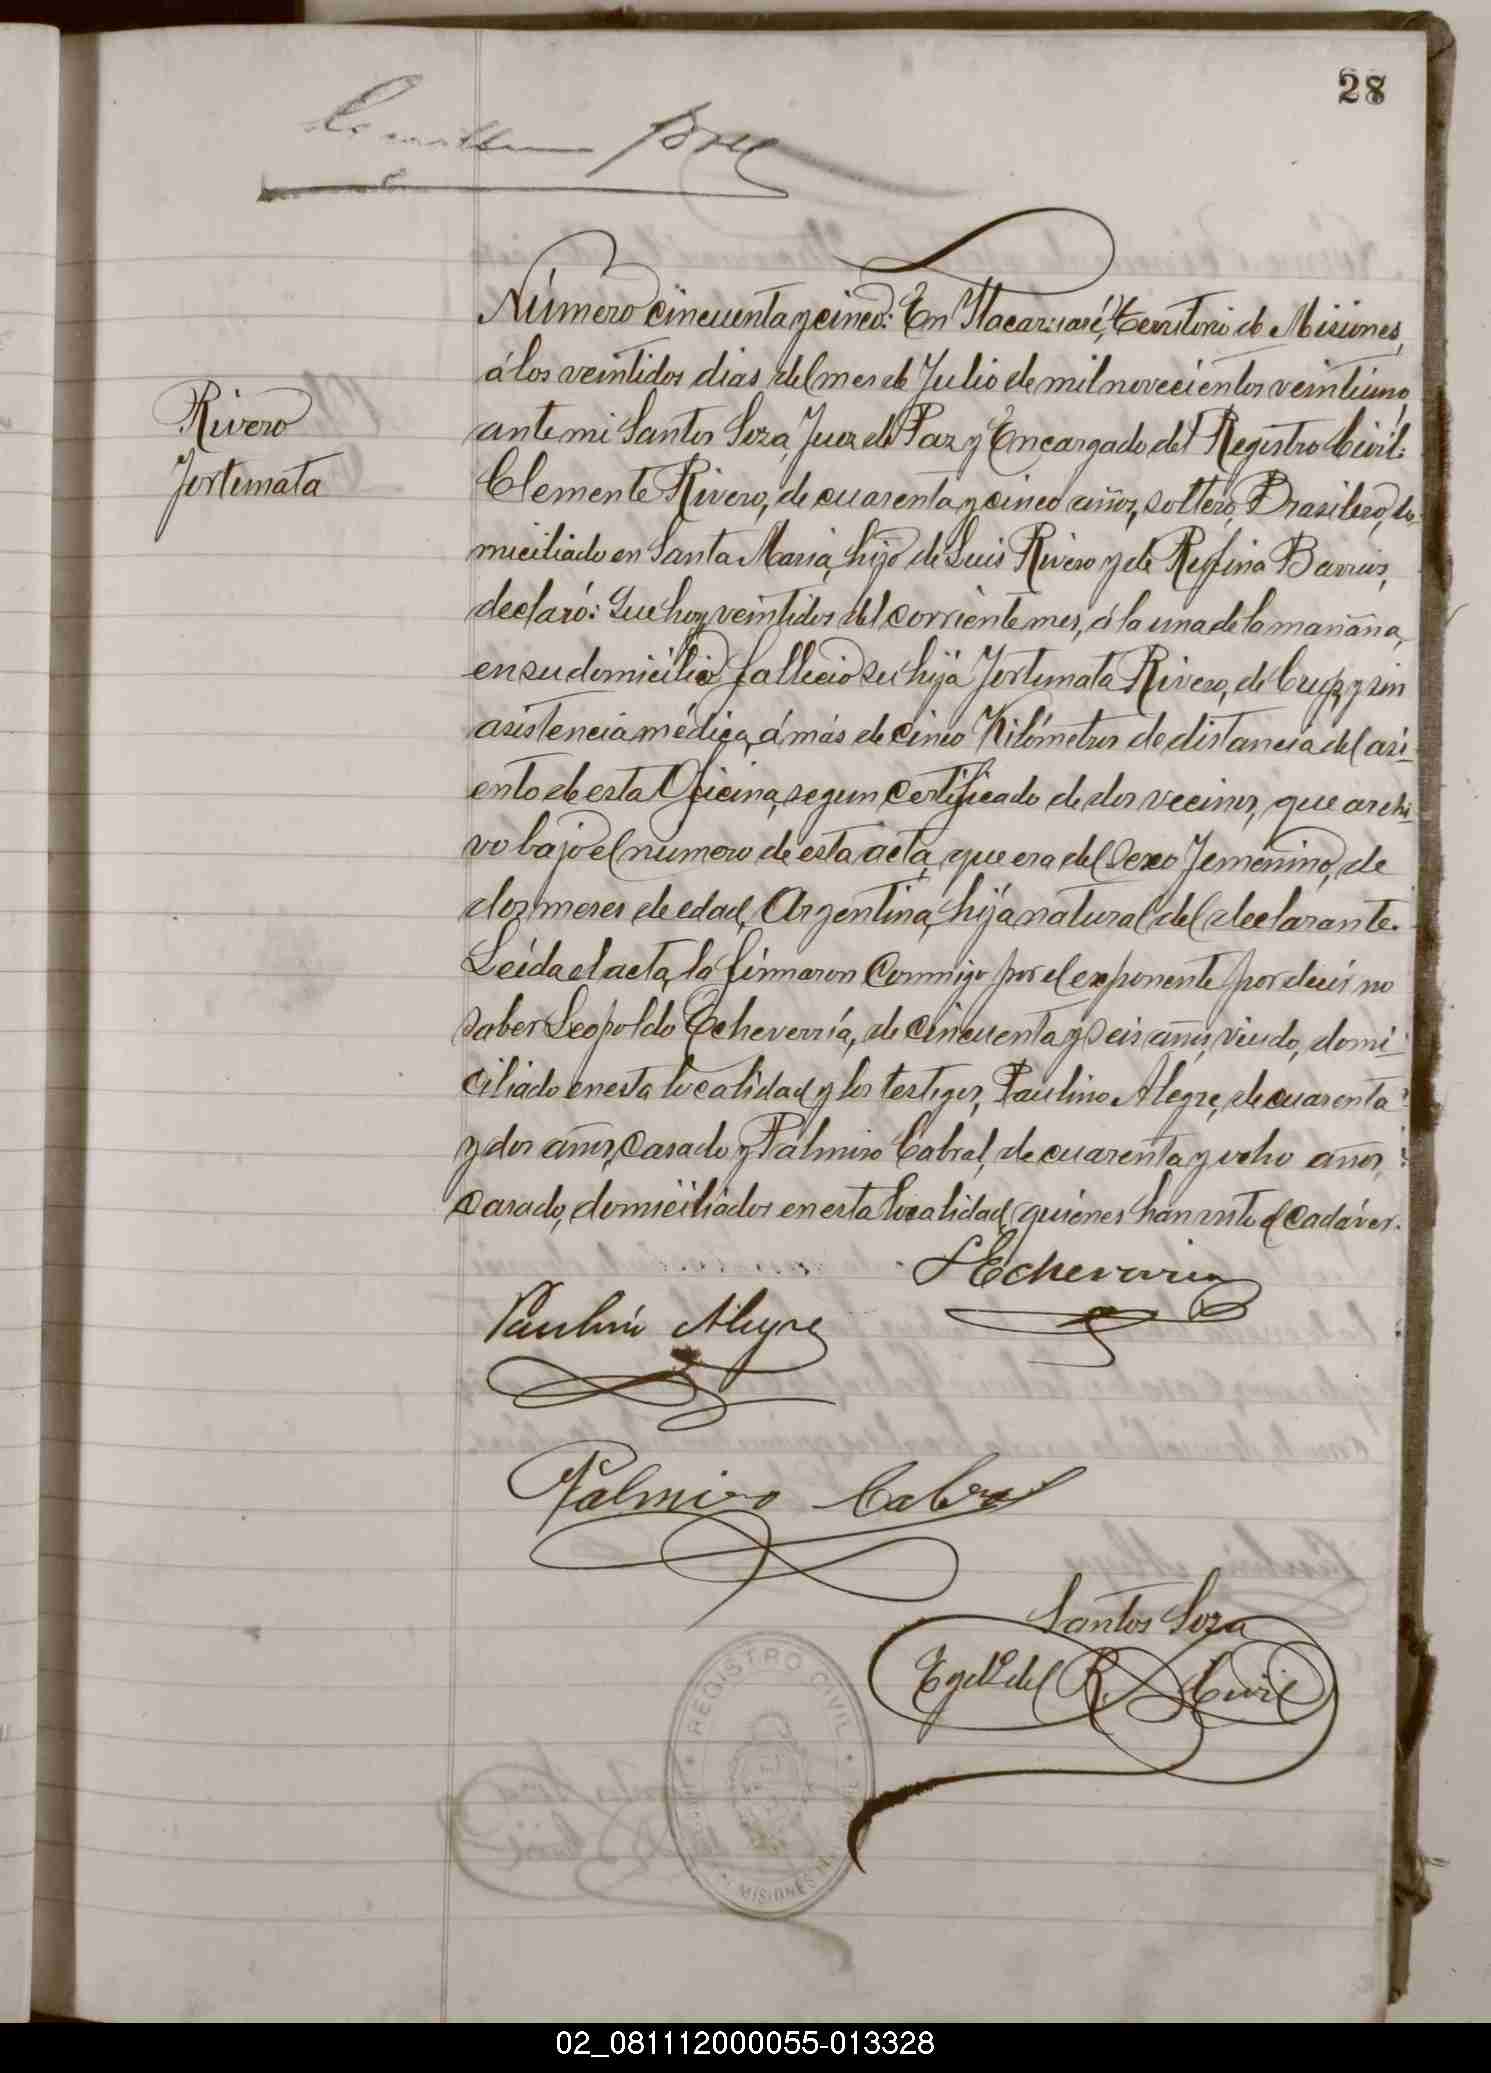 28
Número cincuenta y cinco: En Itacaruaré, Territorio de Misiones,
á los veintidos dias del mes de Julio de mil novecientos veintiuno,
ante mi Santos Soza, Juez de Paz y Encargado del Registro Civil:
Rivero
Fortunata
Clemente Rivero, de cuarenta y cinco años, soltero, Brasilero, do-
miciliado en Santa Maria, hijo de Luis Rivero y de Rufina Barrios,
declaró: Que hoy veintidos del corriente mes, á la una de la mañana,
en su domicilio falleció su hija Fortunata Rivero, de Crup, y sin
asistencia médica, á más de cinco Kilómetros de distancia del asi-
ento de esta Oficina, segun certificado de dos vecinos, que archi-
vo bajo el numero de esta acta, que era del sexo Femenino, de
dos meses de edad, Argentina, hija natural del declarante.
Leída el acta, la firmaron conmigo por el exponente por decir no
saber Leopoldo Echeverría, de cincuenta y seis años, viudo, domi-
ciliado en esta localidad y los testigos, Paulino Alegre, de cuarenta
y dos años, casado y Palmiro Cabral, de cuarenta y ocho años,
casado, domiciliados en esta localidad, quienes han visto el cadáver.
L Echeverria
Paulino Alegre
Palmiro Cabral
Santos Soza
Egdo del R. Civil
REGISTRO CIVIL
MISIONES
02_081112000055-013328